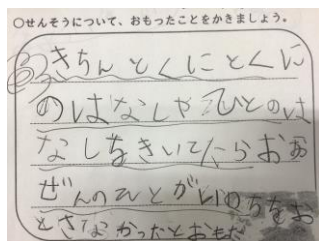 ○せんそうについて、おもったことをかきましょう。
きちんとくにとくに
のはなしやひとのは
なしをきいてたらおお
ぜんのひとがいのちをお
とさなかったとおもた